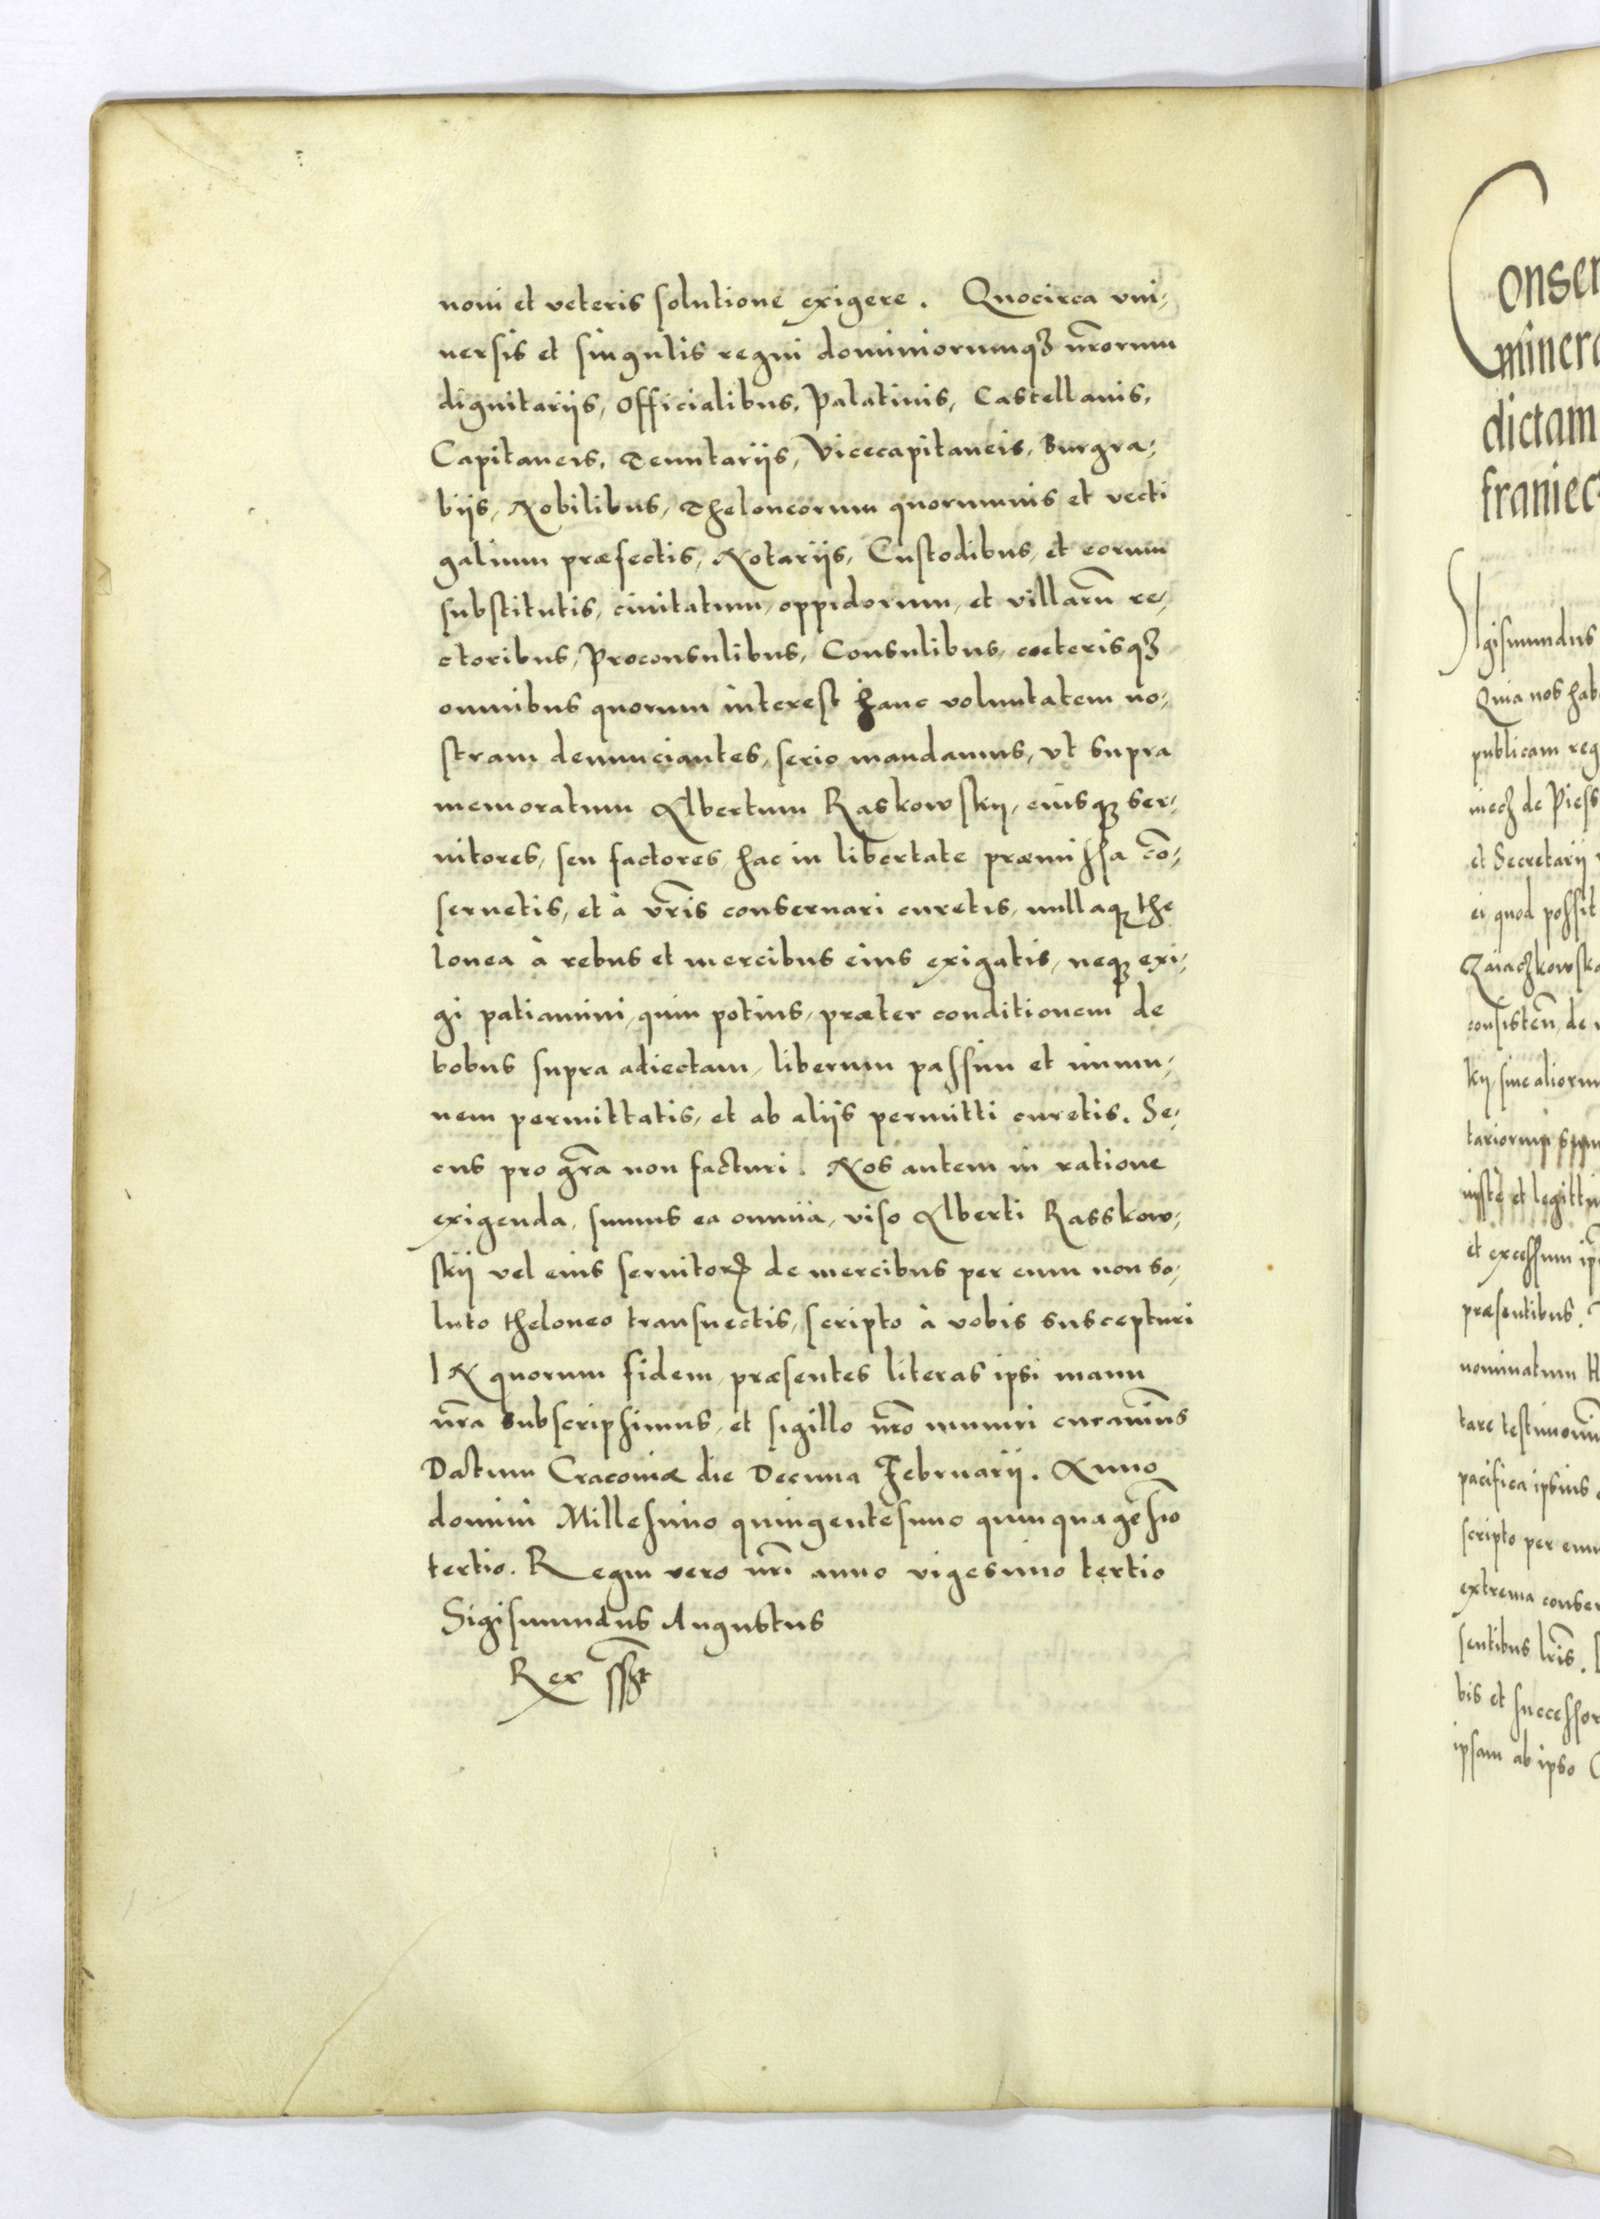 noui et veteris solutione exigere. Quocirca vni,
uersis et singulis regni dominiorumqꝫ nr̃orum
dignitariis, officialibus, Palatinis, Castellanis,
Capitaneis, Tenutariis, Vicecapitaneis, Burgra,
biis, Nobilibus, Theloneorum quorumuis et vecti
galium præfectis, Notariis, Custodibus, et eorum
substitutis, ciuitatum, oppidorum, et villarũ re,
ctoribus, Proconsulibus, Consulibus, cæterisqꝫ
omnibus quorum interest hanc voluntatem no,
stram denunciantes, serio mandamus, vt supra
memoratum Albertum Raskowskij, eiusqꝫ ser,
uitores, seu factores, hac in libertate præmissa cõ,
seruetis, et à vr̃is conseruari curetis, nullaqꝫ the
lonea à rebus et mercibus eius exigatis, neqꝫ exi,
gi patiamini, quin potius, præter conditionem de
bobus supra adiectam, liberum passim et immu,
nem permittatis, et ab aliis permitti curetis. Se,
cus pro gr̃a non facturi. Nos autem in ratione
exigenda, sumus ea omnia, viso Alberti Rasskow,
skij vel eius seruitorꝝ de mercibus per eum non so,
luto theloneo transuectis, scripto à vobis suscepturi
IN quorum fidem, præsentes literas ipsi manu
nr̃a subscripsimus, et sigillo nr̃o muniri curauim̃us
Datum Cracouiæ die Decima Februarii. Anno
domini Millesimo quingentesimo quinquagẽsĩo
tertio. Regni vero nr̃i anno vigesimo tertio
Sigismundus Augustus
Rex sſt
onsen
minera
dictam
franiec
Sigismundus
Quia nos hab
publicam reg
niecꝫ de Piess
et Secretarij
ei, quod possit
Czaiaczkowsk
consisteñ, de
kij, siue aliorum
tariorum
iuste et legitti
et excessum
præsentibus.
nominatum
tare testimoniũ
pacifica ipsius
scripto per eum
extrema conser
sentibus lr̃is.
bis et successor
ipsam ab ipso